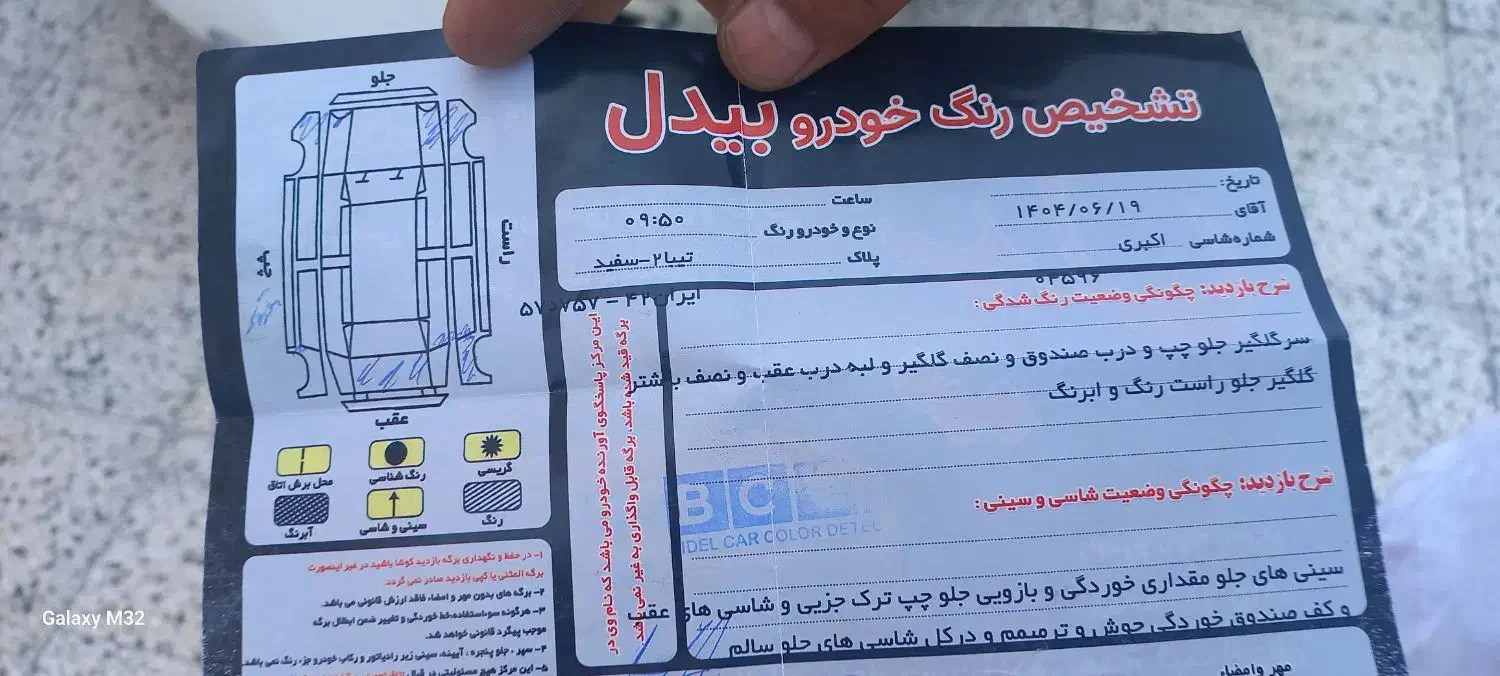 تشخیص رنگ خودرو بیدل
تاریخ:
آقای ۱۴۰۴/۰۶/۱۹
شماره شاسی اکبری
۰۲۵۹۶
ساعت
نوع و خودرو رنگ ۰۹:۵۰
پلاک تیبا۲-سفید
ایران۴۲ - ۷۵۷د۵۷
شرح بازدید: چگونگی وضعیت رنگ شدگی:
سرگلگیر جلو چپ و درب صندوق و نصف گلگیر و لبه درب عقب و نصف بیشتر
گلگیر جلو راست رنگ و ابرنگ
شرح بازدید: چگونگی وضعیت شاسی و سینی:
سینی های جلو مقداری خوردگی و بازویی جلو چپ ترک جزیی و شاسی های عقب
و کف صندوق خوردگی جوش و ترمیمم و درکل شاسی های جلو سالم
مهر و امضاء
این مرکز پاسخگوی آورنده خودرو می باشد که نام وی در
برگه قید شده باشد. برگه قابل واگذاری به غیر نمی باشد
BC
IDEL CAR COLOR DETEC
جلو
راست
چپ
عقب
گریسی
رنگ شناسی
محل برش اتاق
رنگ
سینی و شاسی
آبرنگ
۱- در حفظ و نگهداری برگه بازدید کوشا باشید در غیر اینصورت
برگه المثنی یا کپی بازدید صادر نمی گردد.
۲- برگه های بدون مهر و امضاء فاقد ارزش قانونی می باشد.
۳- هرگونه سوء استفاده، خط خوردگی و تغییر ضمن ابطال برگه
موجب پیگرد قانونی خواهد شد.
۴- سپر ، جلو پنجره ، آیینه، سینی زیر رادیاتور و رکاب خودرو جزء رنگ نمی باشد.
۵- این مرکز هیچ مسئولیتی در قبال
Galaxy M32